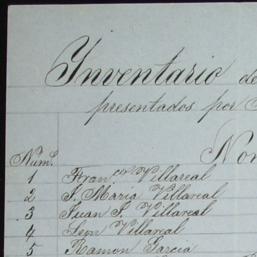 Inventario de
presentados por
Num. No
1 Fran.co Villareal
2 J. Maria Villareal
3 Juan J. Villareal
4 Leon Villareal
5 Ramon Garcia